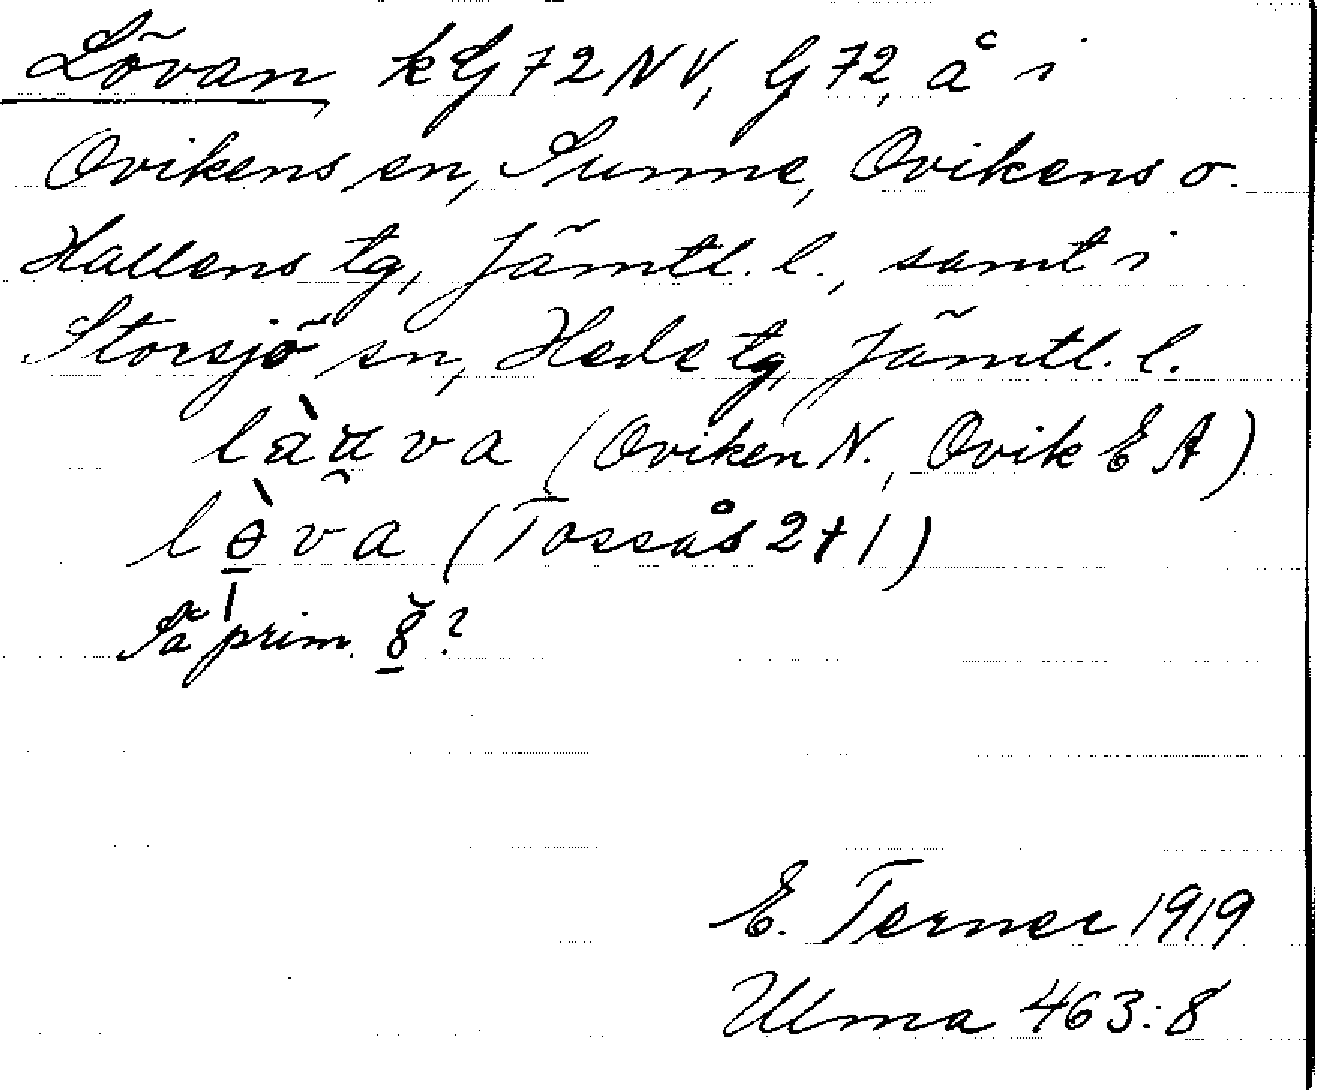 Lövan, kG 72 NV, G 72, å i
Ovikens sn, Sunne, Ovikens o.
Hallens tg, Jämtl. l., samt i
Storsjö sn, Hede tg, Jämtl. l.
(Oviken N., Ovik E A)
(Tossås 2+1)
Så prim. ?
E. Terner 1919
Ulma 463:8